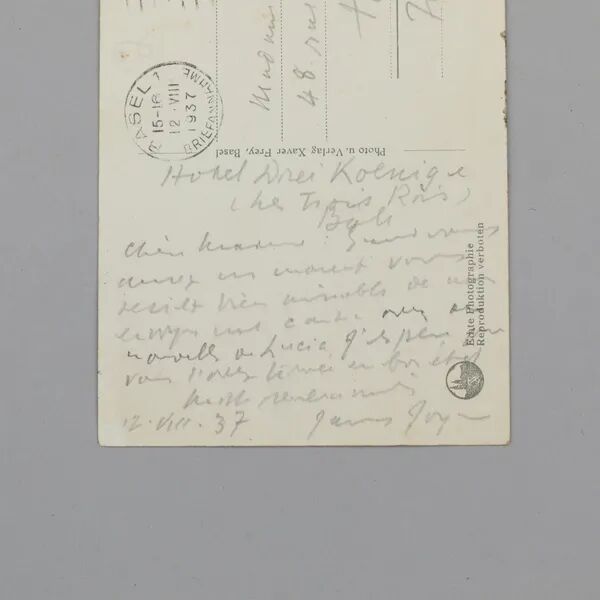 BASEL 1
15-16
12.VIII
1937
BRIEFANNAHME
Madame
48. rue
Photo u. Verlag Xaver Frey, Basel
Hotel Drei Koenige
(Les Trois Rois)
Bâle
Chère Madame: Quand vous
aurez un moment vous
bien aimable de
une carte avec
nouvelles de Lucia. J'espère
vous l'avez trouvée en bon état
12.VIII.37 James Joyce
Echte Photographie
Reproduktion verboten